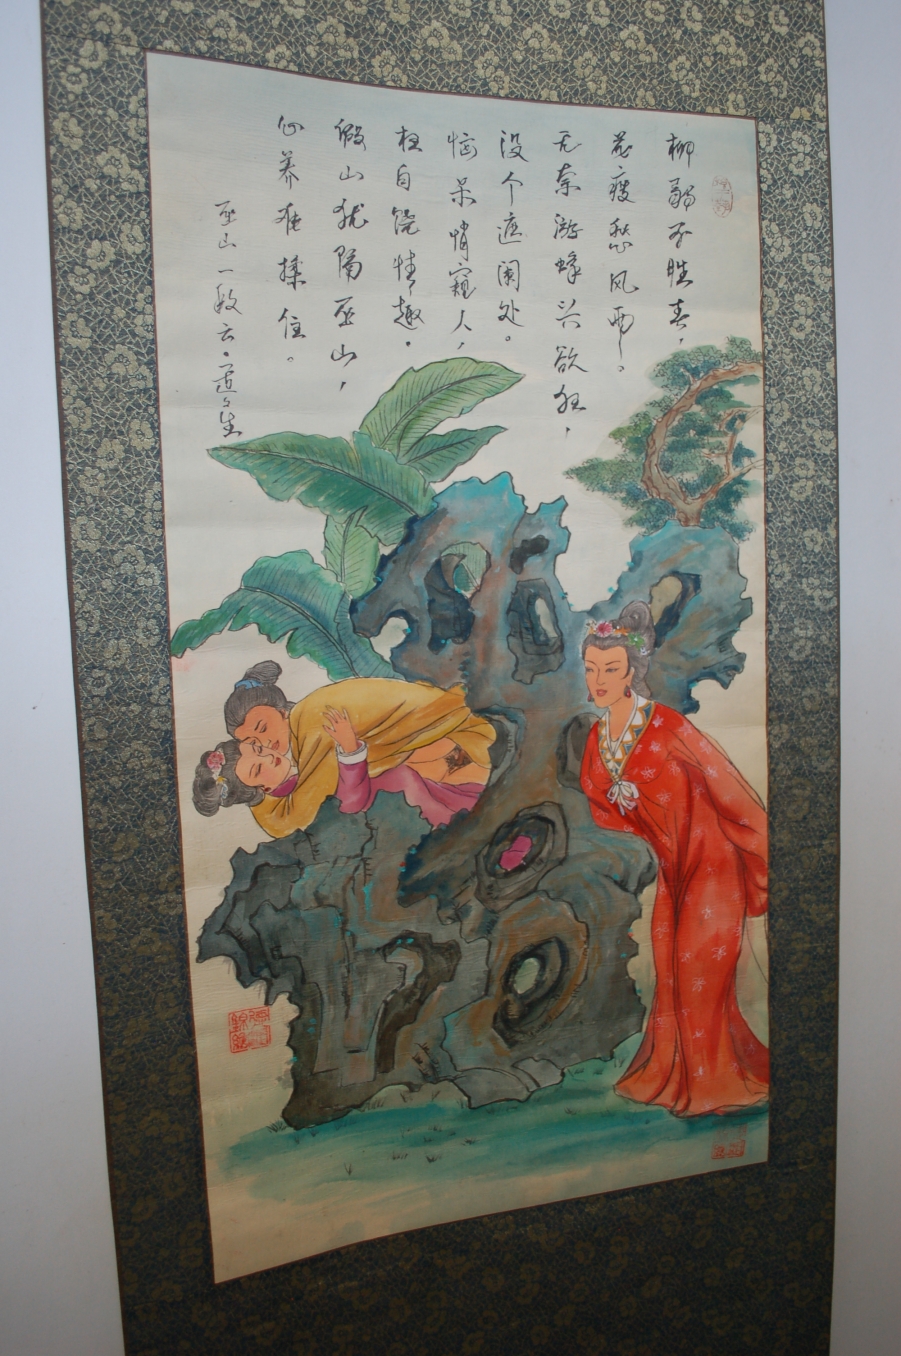 柳弱不胜春，
花瘦愁风雨。
无奈游蜂兴欲狂，
没个遮阑处。
恼呆悄窥人，
枉自饶情趣。
假山犹隔巫山，
心养难揉住。
巫山一段云。道生